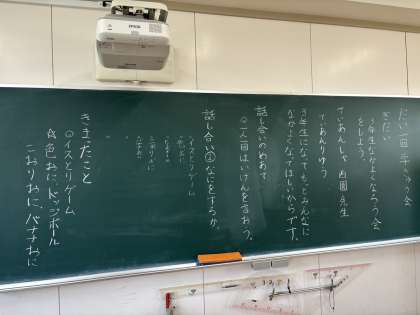 だい一回 三十さつ会
ぎだい
3年生なかよくなろう会
をしよう。
ていあんしゃ 内園先生
ていあんりゆう
3年生になってもっとみんなに
なかよくなってほしいからです。
話し合いのめあて
◎一人一回はいけんを言おう。
話し合い① なにをするか。
・イスとりゲーム
きまったこと
◎イスとりゲーム
☆色おに、ドッジボール
こおりおに、バナナおに
EPSON